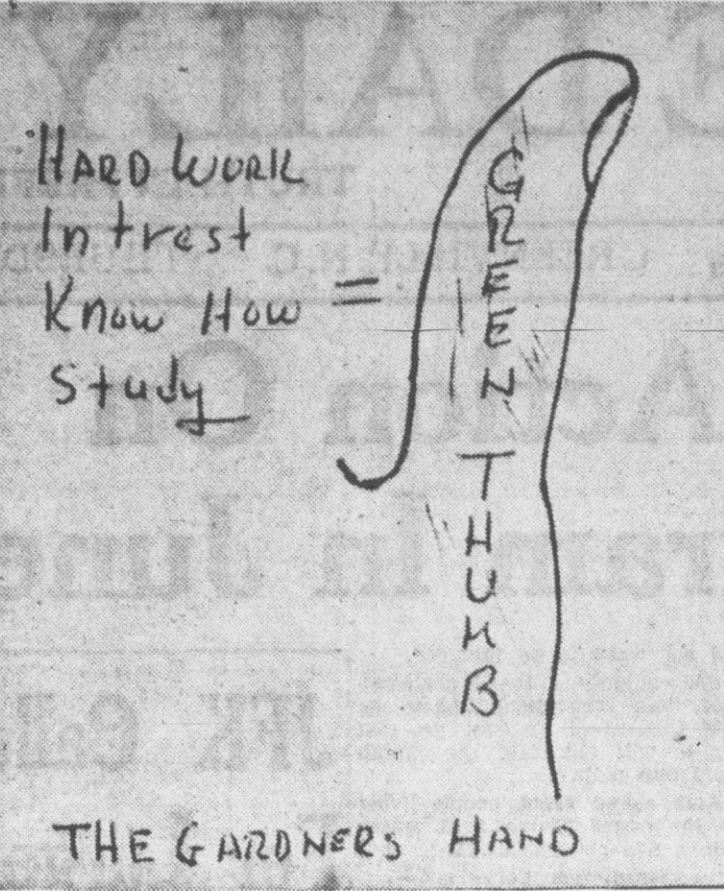 HARD WORK
Intrest
Know How =
Study
GREEN THUMB
THE GARDNERS HAND